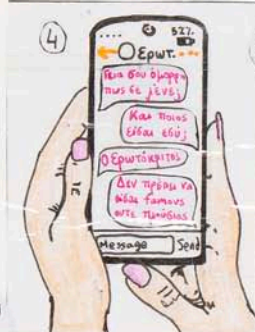 4
52%
Ο Ερωτ...
Γεια σου όμορφη
πως σε λένε;
Και ποιος
είσαι εσύ;
Ο Ερωτόκριτος
Δεν πρέπει να
είσαι famous
ουτε πλούσιος
Message Send